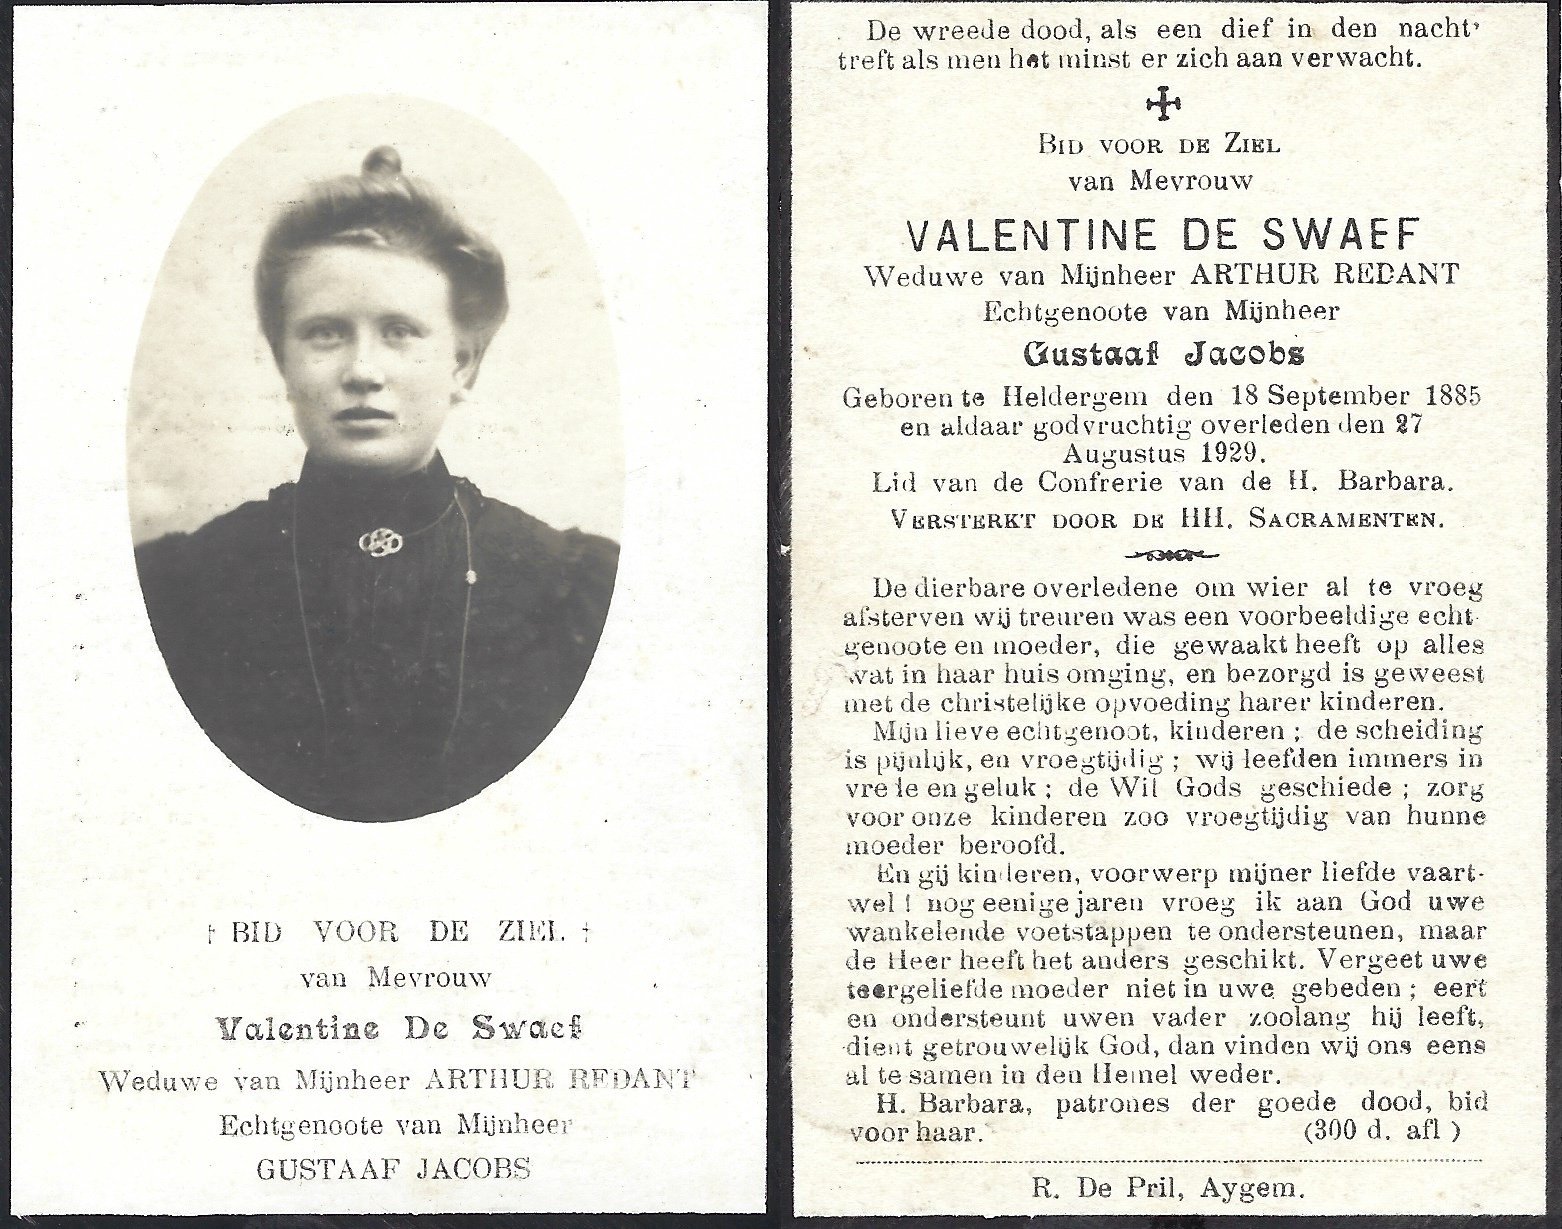 † BID VOOR DE ZIEL †
van Mevrouw
Valentine De Swaef
Weduwe van Mijnheer ARTHUR REDANT
Echtgenoote van Mijnheer
GUSTAAF JACOBS
De wreede dood, als een dief in den nacht'
treft als men het minst er zich aan verwacht.
✠
BID VOOR DE ZIEL
van Mevrouw
VALENTINE DE SWAEF
Weduwe van Mijnheer ARTHUR REDANT
Echtgenoote van Mijnheer
Gustaaf Jacobs
Geboren te Heldergem den 18 September 1885
en aldaar godvruchtig overleden den 27
Augustus 1929.
Lid van de Confrerie van de H. Barbara.
VERSTERKT DOOR DE HH. SACRAMENTEN.
De dierbare overledene om wier al te vroeg
afsterven wij treuren was een voorbeeldige echt-
genoote en moeder, die gewaakt heeft op alles
wat in haar huis omging, en bezorgd is geweest
met de christelijke opvoeding harer kinderen.
Mijn lieve echtgenoot, kinderen ; de scheiding
is pijnlijk, en vroegtijdig ; wij leefden immers in
vrede en geluk ; de Wil Gods geschiede ; zorg
voor onze kinderen zoo vroegtijdig van hunne
moeder beroofd.
En gij kinderen, voorwerp mijner liefde vaart-
wel ! nog eenige jaren vroeg ik aan God uwe
wankelende voetstappen te ondersteunen, maar
de Heer heeft het anders geschikt. Vergeet uwe
teergeliefde moeder niet in uwe gebeden ; eert
en ondersteunt uwen vader zoolang hij leeft,
dient getrouwelijk God, dan vinden wij ons eens
al te samen in den Hemel weder.
H. Barbara, patrones der goede dood, bid
voor haar. (300 d. afl )
R. De Pril, Aygem.